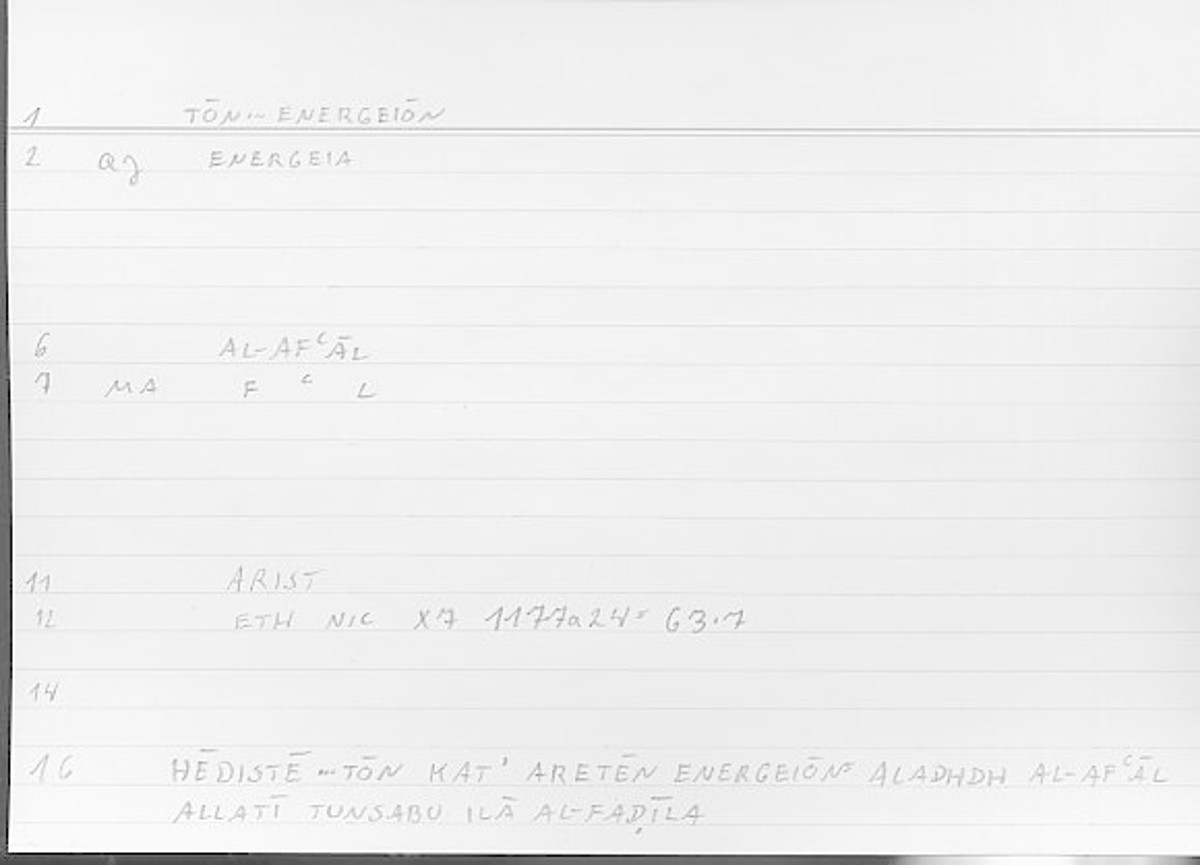 1 TŌN... ENERGEIŌN
2 ag ENERGEIA
6 AL-AFᶜĀL
7 MA F ᶜ L
11 ARIST
12 ETH NIC X7 1177a24= 63.7
14
16 HĒDISTĒ...TŌN KAT' ARETĒN ENERGEIŌN= ALADHDH AL-AFᶜĀL
ALLATĪ TUNSABU ILĀ AL-FAḌĪLA